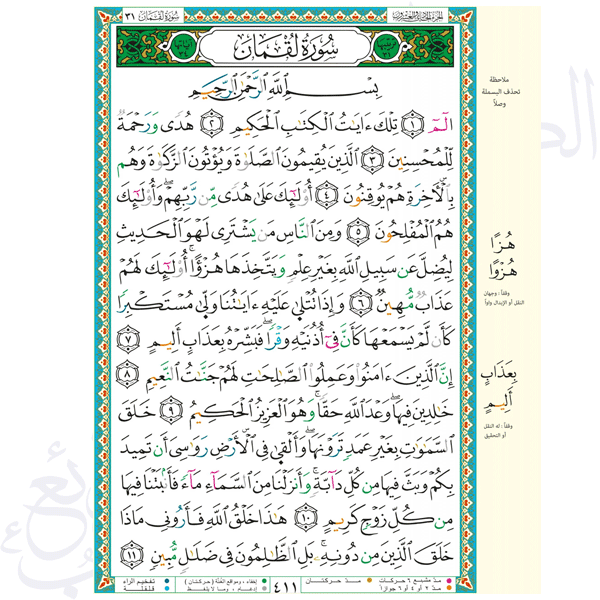 الجزء الحادي والعشرون سورة لقمان ٣١
سُورَةُ لُقْمَان
بِسْمِ اللَّهِ الرَّحْمَٰنِ الرَّحِيمِ
الٓمٓ ١ تِلْكَ ءَايَٰتُ الْكِتَٰبِ الْحَكِيمِ ٢ هُدًى وَرَحْمَةٌ
لِّلْمُحْسِنِينَ ٣ الَّذِينَ يُقِيمُونَ الصَّلَوٰةَ وَيُؤْتُونَ الزَّكَوٰةَ وَهُم
بِالْأَخِرَةِ هُمْ يُوقِنُونَ ٤ أُوْلَٰٓئِكَ عَلَىٰ هُدًى مِّن رَّبِّهِمْ وَأُوْلَٰٓئِكَ
هُمُ الْمُفْلِحُونَ ٥ وَمِنَ النَّاسِ مَن يَشْتَرِى لَهْوَ الْحَدِيثِ
لِيُضِلَّ عَن سَبِيلِ اللَّهِ بِغَيْرِ عِلْمٍ وَيَتَّخِذَهَا هُزْؤًا أُوْلَٰٓئِكَ لَهُمْ
عَذَابٌ مُّهِينٌ ٦ وَإِذَا تُتْلَىٰ عَلَيْهِ ءَايَٰتُنَا وَلَّىٰ مُسْتَكْبِرًا
كَأَن لَّمْ يَسْمَعْهَا كَأَنَّ فِىٓ أُذُنَيْهِ وَقْرًا فَبَشِّرْهُ بِعَذَابٍ أَلِيمٍ ٧
إِنَّ الَّذِينَ ءَامَنُوا۟ وَعَمِلُوا۟ الصَّٰلِحَٰتِ لَهُمْ جَنَّٰتُ النَّعِيمِ ٨
خَٰلِدِينَ فِيهَا وَعْدَ اللَّهِ حَقًّا وَهُوَ الْعَزِيزُ الْحَكِيمُ ٩ خَلَقَ
السَّمَٰوَٰتِ بِغَيْرِ عَمَدٍ تَرَوْنَهَا وَأَلْقَىٰ فِى الْأَرْضِ رَوَٰسِىَ أَن تَمِيدَ
بِكُمْ وَبَثَّ فِيهَا مِن كُلِّ دَآبَّةٍ وَأَنزَلْنَا مِنَ السَّمَآءِ مَآءً فَأَنۢبَتْنَا فِيهَا
مِن كُلِّ زَوْجٍ كَرِيمٍ ١٠ هَٰذَا خَلْقُ اللَّهِ فَأَرُونِى مَاذَا
خَلَقَ الَّذِينَ مِن دُونِهِ بَلِ الظَّٰلِمُونَ فِى ضَلَٰلٍ مُّبِينٍ ١١
ملاحظة
تحذف البسملة
وصلاً
هُزًا
هُزْوًا
وقفاً: وجهان
النقل أو الإبدال واواً
بِعَذَابٍ
أَلِيمٍ
وقفاً: له النقل
أو التحقيق
مدّ مشبع ٦ حركات مدّ حركتان ٤١١ إخفاء، ومواقع الغنّة (حركتان) تفخيم الراء
مدّ ٢ أو ٤ أو ٦ جوازاً إدغام، وما لا يُلفظ قلقلة